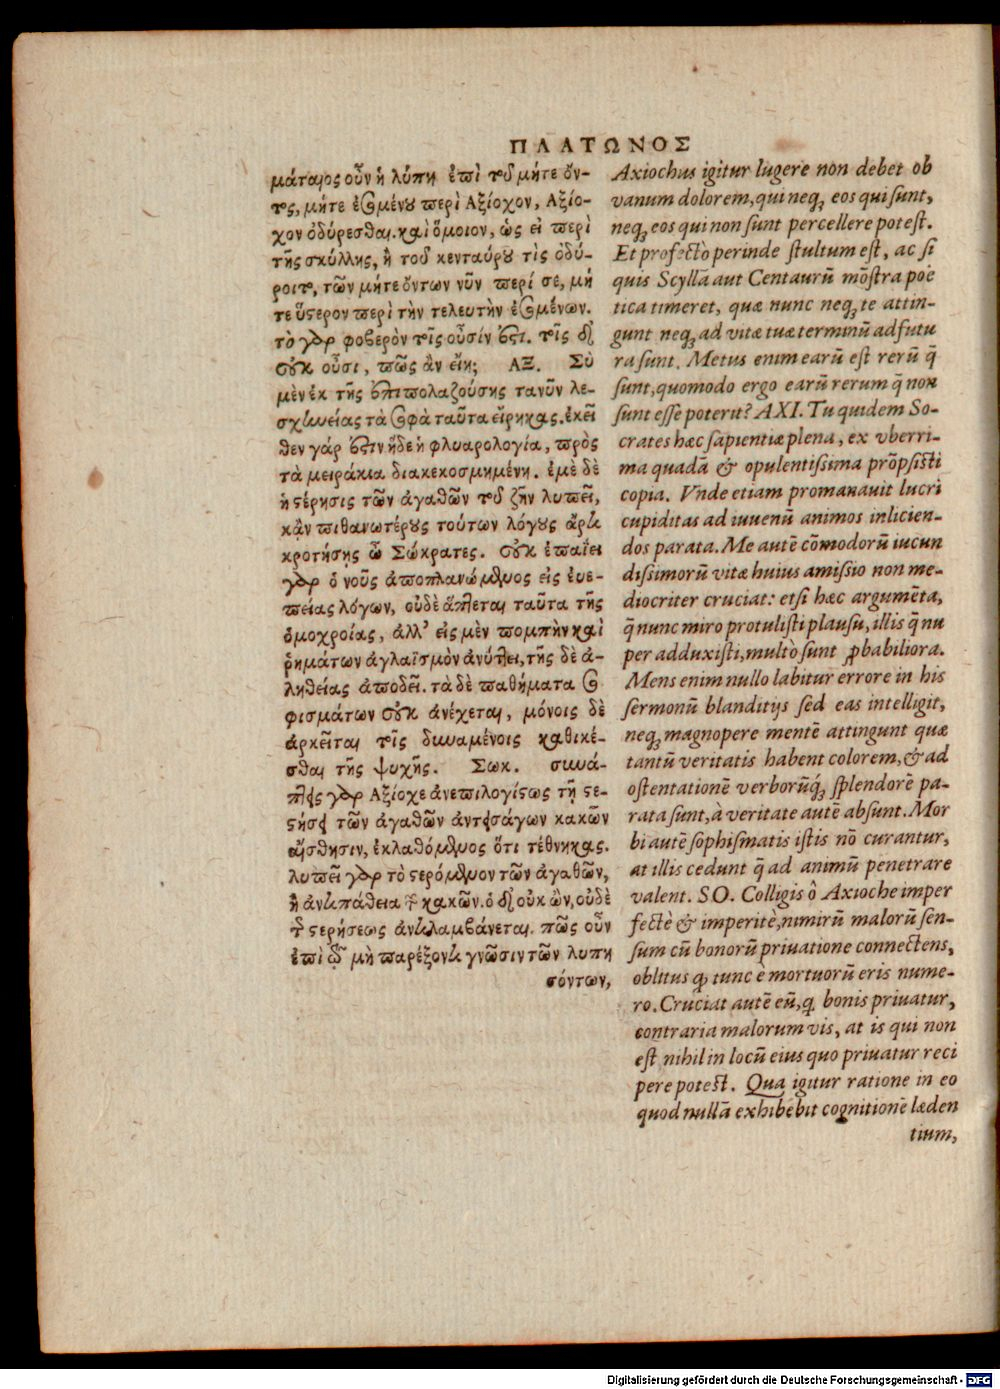 ΠΛΑΤΩΝΟΣ
μάταιος οὖν ἡ λύπη ἐπὶ τοῦ μήτε ὄν-
τος, μήτε ἐσομένου περὶ Αξίοχον, Αξίο-
χον ὀδύρεσθαι. καὶ ὅμοιον, ὡς εἰ περὶ
τῆς σκύλλης, ἢ τοῦ κενταύρου τὶς ὀδύ-
ροιτο, τῶν μήτε ὄντων νῦν περί σε, μή
τε ὕστερον περὶ τὴν τελευτὴν ἐσομένων.
τὸ γὰρ φοβερὸν τοῖς οὖσίν ἐστι. τοῖς δὲ
οὐκ οὖσι, πῶς ἂν εἴη; ΑΞ. Σὺ
μὲν ἐκ τῆς ἐπιπολαζούσης τανῦν λε-
σχηνείας τὰ σοφὰ ταῦτα εἴρηκας. ἐκεῖ
θεν γάρ ἐστιν ἥδε ἡ φλυαρολογία, πρὸς
τὰ μειράκια διακεκοσμημένη. ἐμὲ δὲ
ἡ στέρησις τῶν ἀγαθῶν τοῦ ζῆν λυπεῖ,
κἂν πιθανωτέρους τούτων λόγους ἄρτι
κροτήσῃς ὦ Σώκρατες. οὐκ ἐπαΐει
γὰρ ὁ νοῦς ἀποπλανώμενος εἰς ἐυε-
πείας λόγων, οὐδὲ ἅπτεται ταῦτα τῆς
ὁμοχροίας, ἀλλ' εἰς μὲν πομπὴν καὶ
ῥημάτων ἀγλαϊσμὸν ἀνύτει, τῆς δὲ ἀ-
ληθείας ἀποδεῖ. τὰ δὲ παθήματα σο
φισμάτων οὐκ ἀνέχεται, μόνοις δὲ
ἀρκεῖται τοῖς δυναμένοις καθικέ-
σθαι τῆς ψυχῆς. Σωκ. συνά-
πτεις γὰρ Αξίοχε ἀνεπιλογίστως τῇ στε-
ρήσει τῶν ἀγαθῶν ἀντεισάγων κακῶν
αἴσθησιν, ἐκλαθόμενος ὅτι τέθνηκας.
λυπεῖ γὰρ τὸ στερόμενον τῶν ἀγαθῶν,
ἡ ἀντιπάθεια τῶν κακῶν. ὁ δὲ οὐκ ὢν, οὐδὲ
τῆς στερήσεως ἀντιλαμβάνεται. πῶς οὖν
ἐπὶ τῷ μὴ παρέξοντι γνῶσιν τῶν λυπη
σόντων,
Axiochus igitur lugere non debet ob
vanum dolorem, qui neq; eos qui sunt,
neq; eos qui non sunt percellere potest.
Et profectò perinde stultum est, ac si
quis Scyllā aut Centaurū mōstra poë
tica timeret, quæ nunc neq; te attin-
gunt neq; ad vitæ tuæ terminū adfutu
ra sunt. Metus enim earū est rerū q̄
sunt, quomodo ergo earū rerum q̄ non
sunt esse poterit? AXI. Tu quidem So-
crates hæc sapientiæ plena, ex vberri-
ma quadā & opulentissima prōpsisti
copia. Vnde etiam promanauit lucri
cupiditas ad iuuenū animos inlicien-
dos parata. Me autē cōmodorū iucun
dissimorū vitæ huius amissio non me-
diocriter cruciat: etsi hæc argumēta,
q̄ nunc miro protulisti plausu, illis q̄ nu
per adduxisti, multò sunt ꝓbabiliora.
Mens enim nullo labitur errore in his
sermonū blanditijs sed eas intelligit,
neq; magnopere mentē attingunt quæ
tantū veritatis habent colorem, & ad
ostentationē verborūq́; splendorē pa-
rata sunt, à veritate autē absunt. Mor
bi autē sophismatis istis nō curantur,
at illis cedunt q̄ ad animū penetrare
valent. SO. Colligis ô Axioche imper
fectè & imperitè, nimirū malorū sen-
sum cū bonorū priuatione connectens,
oblitus ꝙ tunc è mortuorū eris nume-
ro. Cruciat autē eū, ꝗ bonis priuatur,
contraria malorum vis, at is qui non
est nihil in locū eius quo priuatur reci
pere potest. Qua igitur ratione in eo
quod nullā exhibebit cognitionē læden
tium,
Digitalisierung gefördert durch die Deutsche Forschungsgemeinschaft - DFG